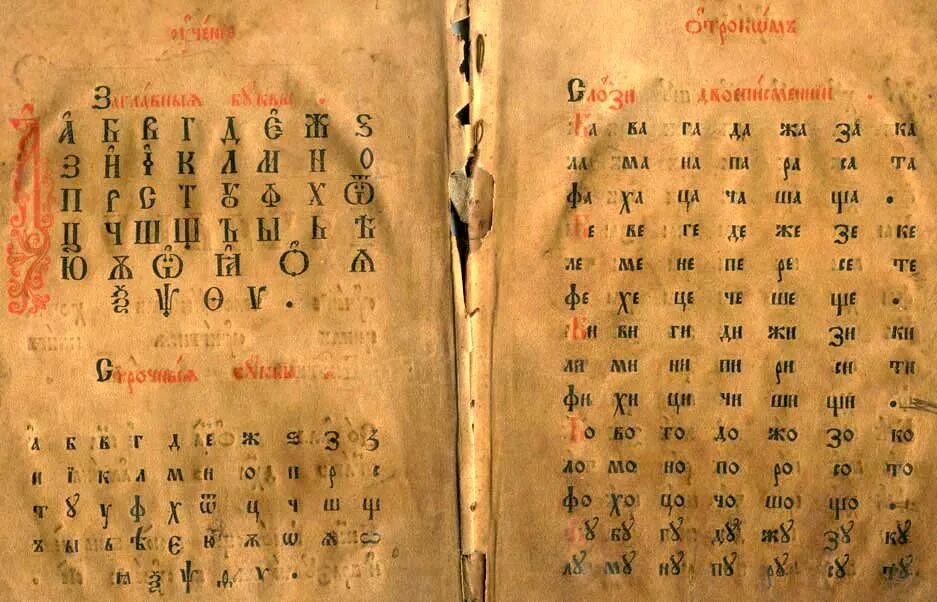 Ꙋченїе
Заглавныѧ бꙋквы .
А Б В Г Д Є Ж Ѕ
З И Ї К Л М Н О
П Р С Т Ꙋ Ф Х Ѿ
Ц Ч Ш Щ Ъ Ы Ь Ѣ
Ю Ѫ Ѡ Ꙗ Ѻ Ѧ
Ѯ Ѱ Ѳ Ѵ .
Строчныѧ бꙋквы
а б в г д е ж ѕ з
и ї к л м н о п р с
т ꙋ у ф х ѿ ц ч ш щ
ъ ы ь ѣ є ю ѫ ѡ ѧ
ꙗ ѯ ѱ ѳ ѵ .
Ѻтрокѡмъ
Слози двоеписменнїи .
Ба ва га да жа за ка
ла ма на па ра са та
фа ха ца ча ша ща .
Бе ве ге де же зе ке
ле ме не пе ре се те
фе хе це че ше ще .
Би ви ги ди жи зи ки
ли ми ни пи ри си ти
фи хи ци чи ши щи .
Бо во го до жо зо ко
ло мо но по ро со то
фо хо цо чо шо що .
бꙋ гꙋ дꙋ жꙋ зꙋ кꙋ
лꙋ мꙋ нꙋ пꙋ рꙋ сꙋ тꙋ